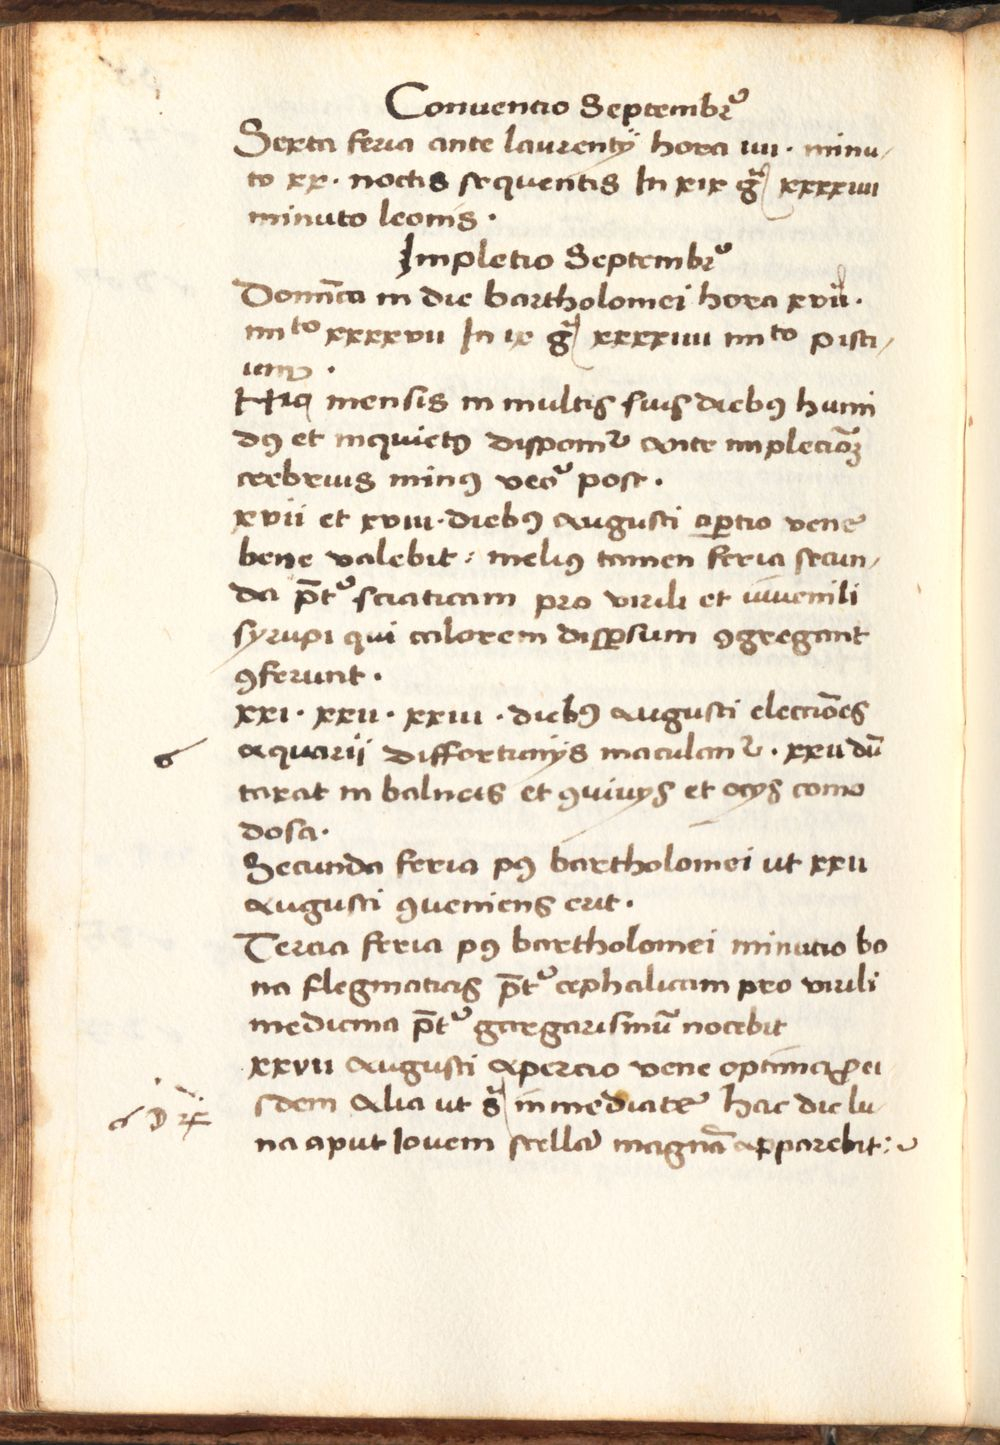 Conuentio Septembrꝰ
Sexta feria ante laurentij hora iiii · minu-
to xx · noctis sequentis In xix gͣ xxxxiiii
minuto leonis ·
Impletio Septembrꝰ
Dom̄ica in die bartholomei hora xvii ·
miᵗᵒ xxxxvii In ix gͣ xxxxiiii miᵗᵒ pisci-
um ·
Hic mensis in multis suis diebꝰ humi
dꝰ et inquietꝰ disponit᷑ ante impletiōꝫ
crebrius minꝰ veͦ post ·
xvii et xviii · diebꝰ Augusti aꝑtio vene
bene valebit : meliꝰ tamen feria secun-
da p̄tꝰ sciaticam pro virili et iuuenili
syrupi qui calorem disꝑsum ꝯgregant
ꝯferunt ·
xxi · xxii · xxiii · diebꝰ Augusti elecciōes
Aquarii diffortunijs maculant᷑ · xxii dū
taxat in balneis et ꝯuiuijs et ocijs como
dosa ·
Secunda feria pꝰ bartholomei ut xxii
Augusti ꝯueniens erit ·
Tercia feria pꝰ bartholomei minucio bo
na flegmaticis p̄tꝰ cephalicam pro virili
medicina p̄tꝰ gargarismū nocebit
xxvii Augusti apercio vene optima ꝓ ei
sdem Alia ut sͣ inmediate Hac die lu-
na aput Iovem stellā magnā apparebit :